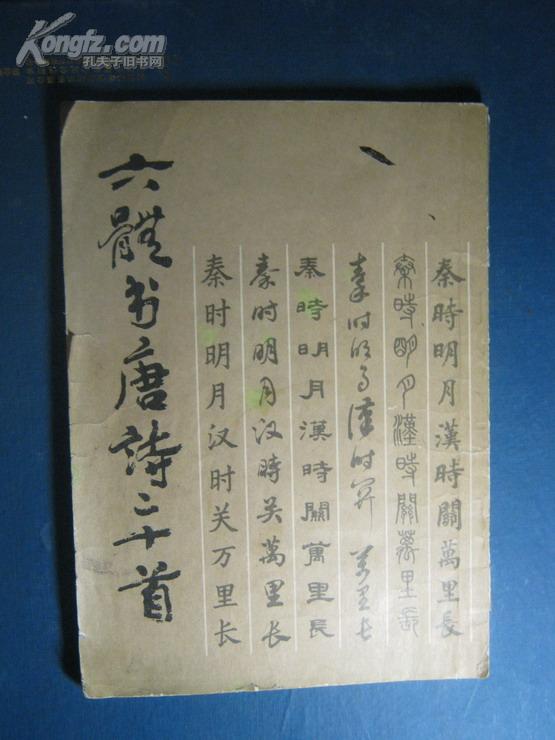 Kongfz.com
孔夫子旧书网
秦時明月漢時關萬里長
秦時明月漢時關萬里長
秦时明月漢时关万里长
秦時明月漢時關萬里長
秦时明月汉時关萬里长
秦时明月汉时关万里长
六體书唐詩二十首